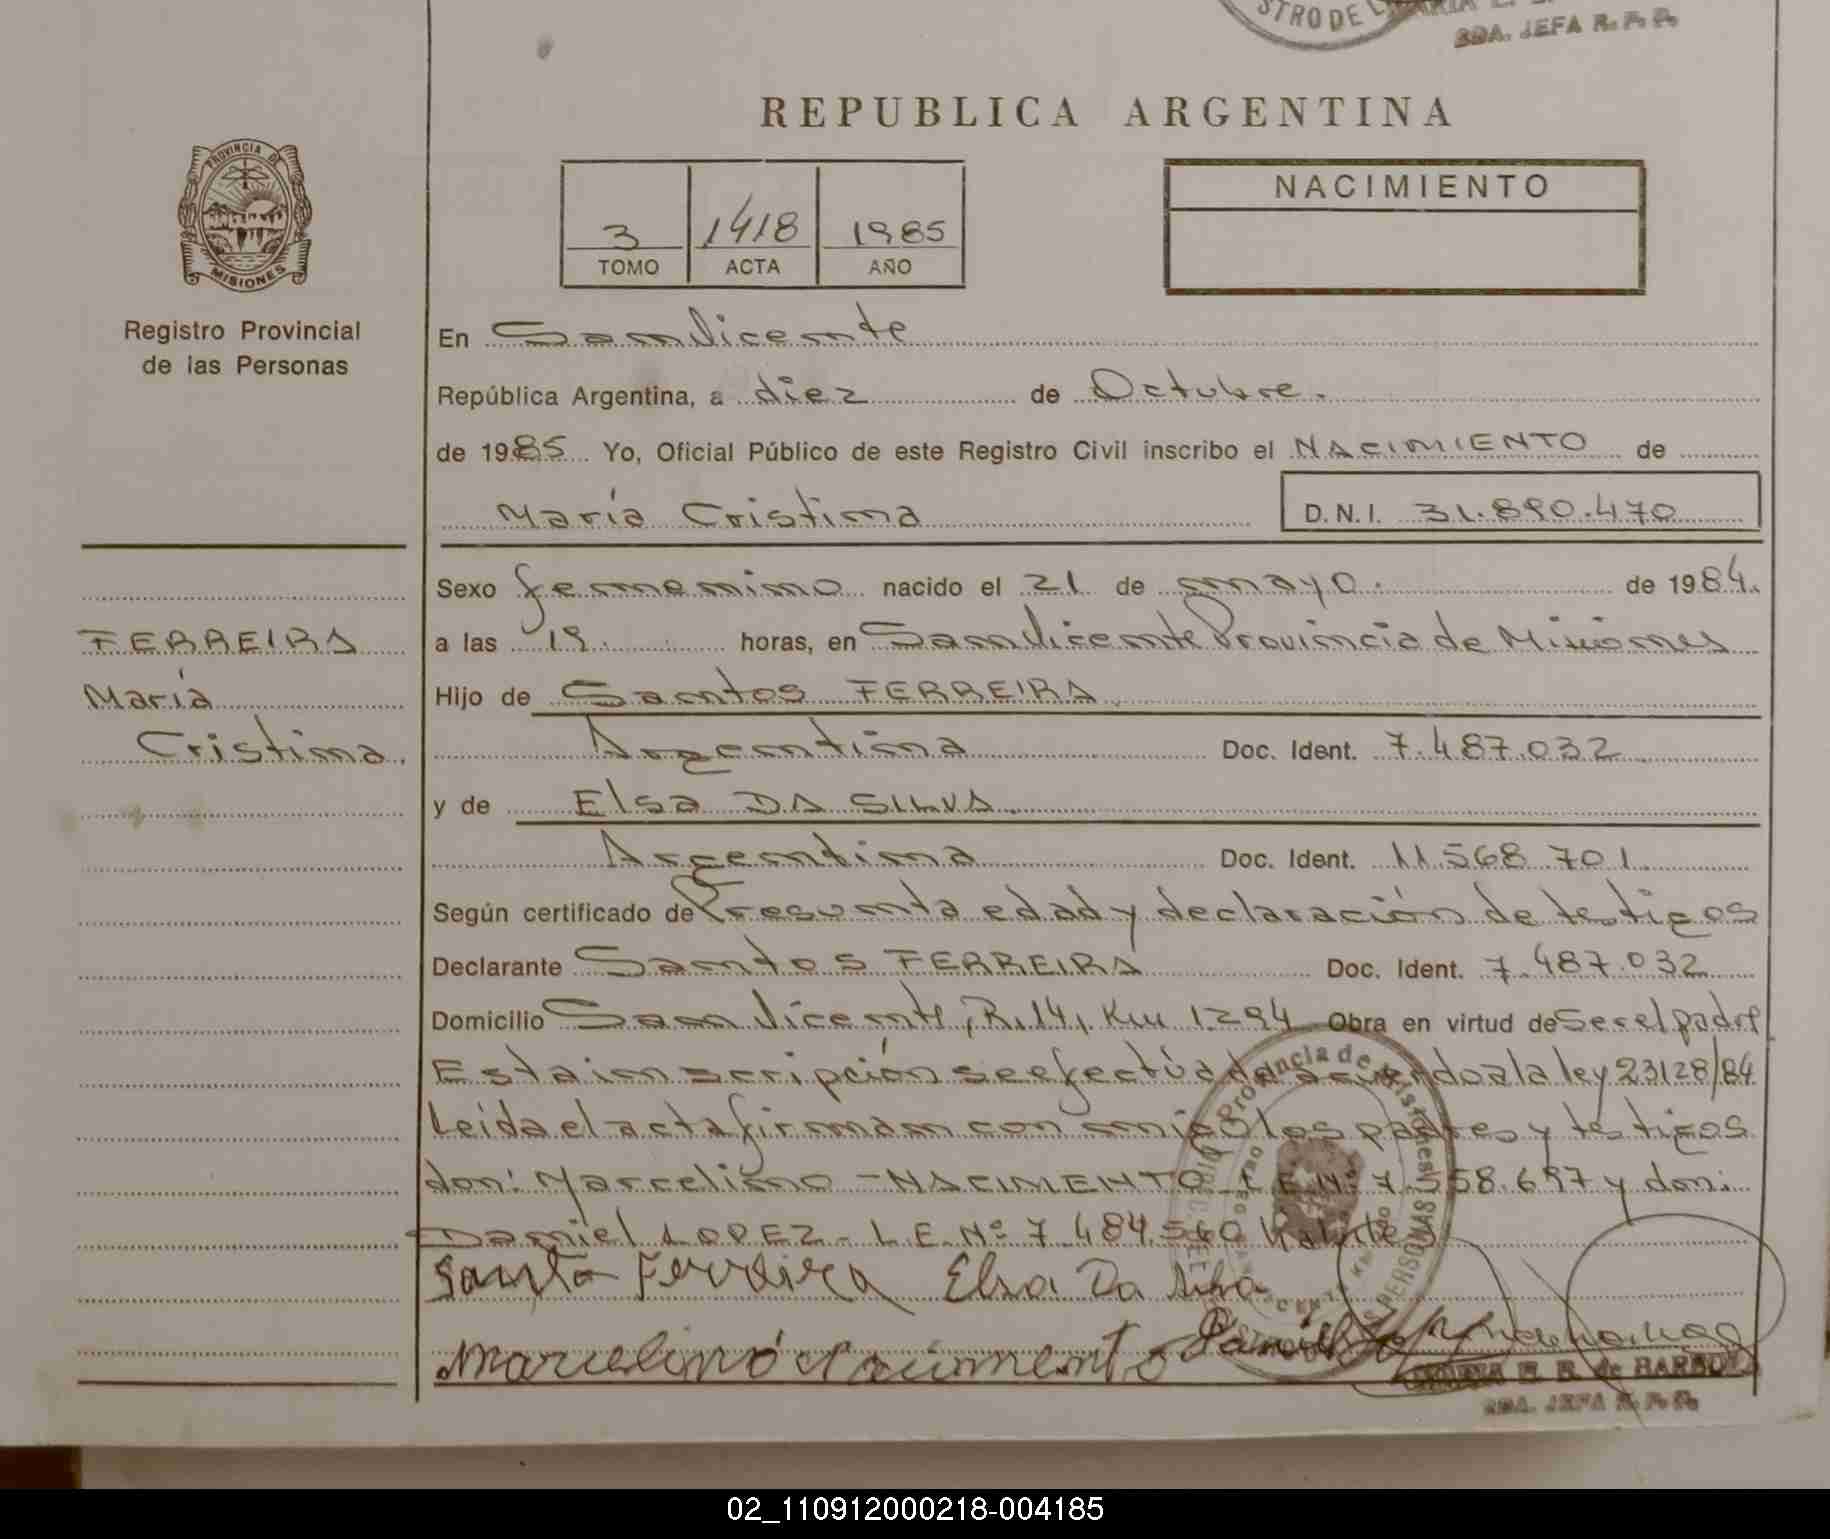 STRO DE
SDA. JEFA R. P. P.
REPUBLICA ARGENTINA
PROVINCIA DE
MISIONES
Registro Provincial
de las Personas
3 1418 1985
TOMO ACTA AÑO
NACIMIENTO
En San Vicente
República Argentina, a diez de Octubre.
de 1985 Yo, Oficial Público de este Registro Civil inscribo el NACIMIENTO de
María Cristina D.N.I. 31.890.470
FERREIRA
María
Cristina.
Sexo femenino nacido el 21 de mayo. de 1984.
a las 19. horas, en San Vicente Provincia de Misiones
Hijo de Santos FERREIRA
Argentina Doc. Ident. 7.487.032
y de Elsa DA SILVA
Argentina Doc. Ident. 11.568.701
Según certificado de Presunta edad y declaración de testigos
Declarante Santos FERREIRA Doc. Ident. 7.487.032
Domicilio San Vicente, R.14, Km 1294 Obra en virtud de Ser el padre
Esta inscripción se efectúa de acuerdo a la ley 23128/84
Leida el acta firman con migo los padres y testigos
don: Marcelino - NACIMENTO L.E. Nº 7.558.697 y don:
Daniel LOPEZ - L.E. Nº 7.484.560
Santo Ferreira Elsa Da Silva
Marcelino Nacimento
Provincia de Misiones
PERSONAS
E. R. de
SDA. JEFA R. P. P.
02_110912000218-004185